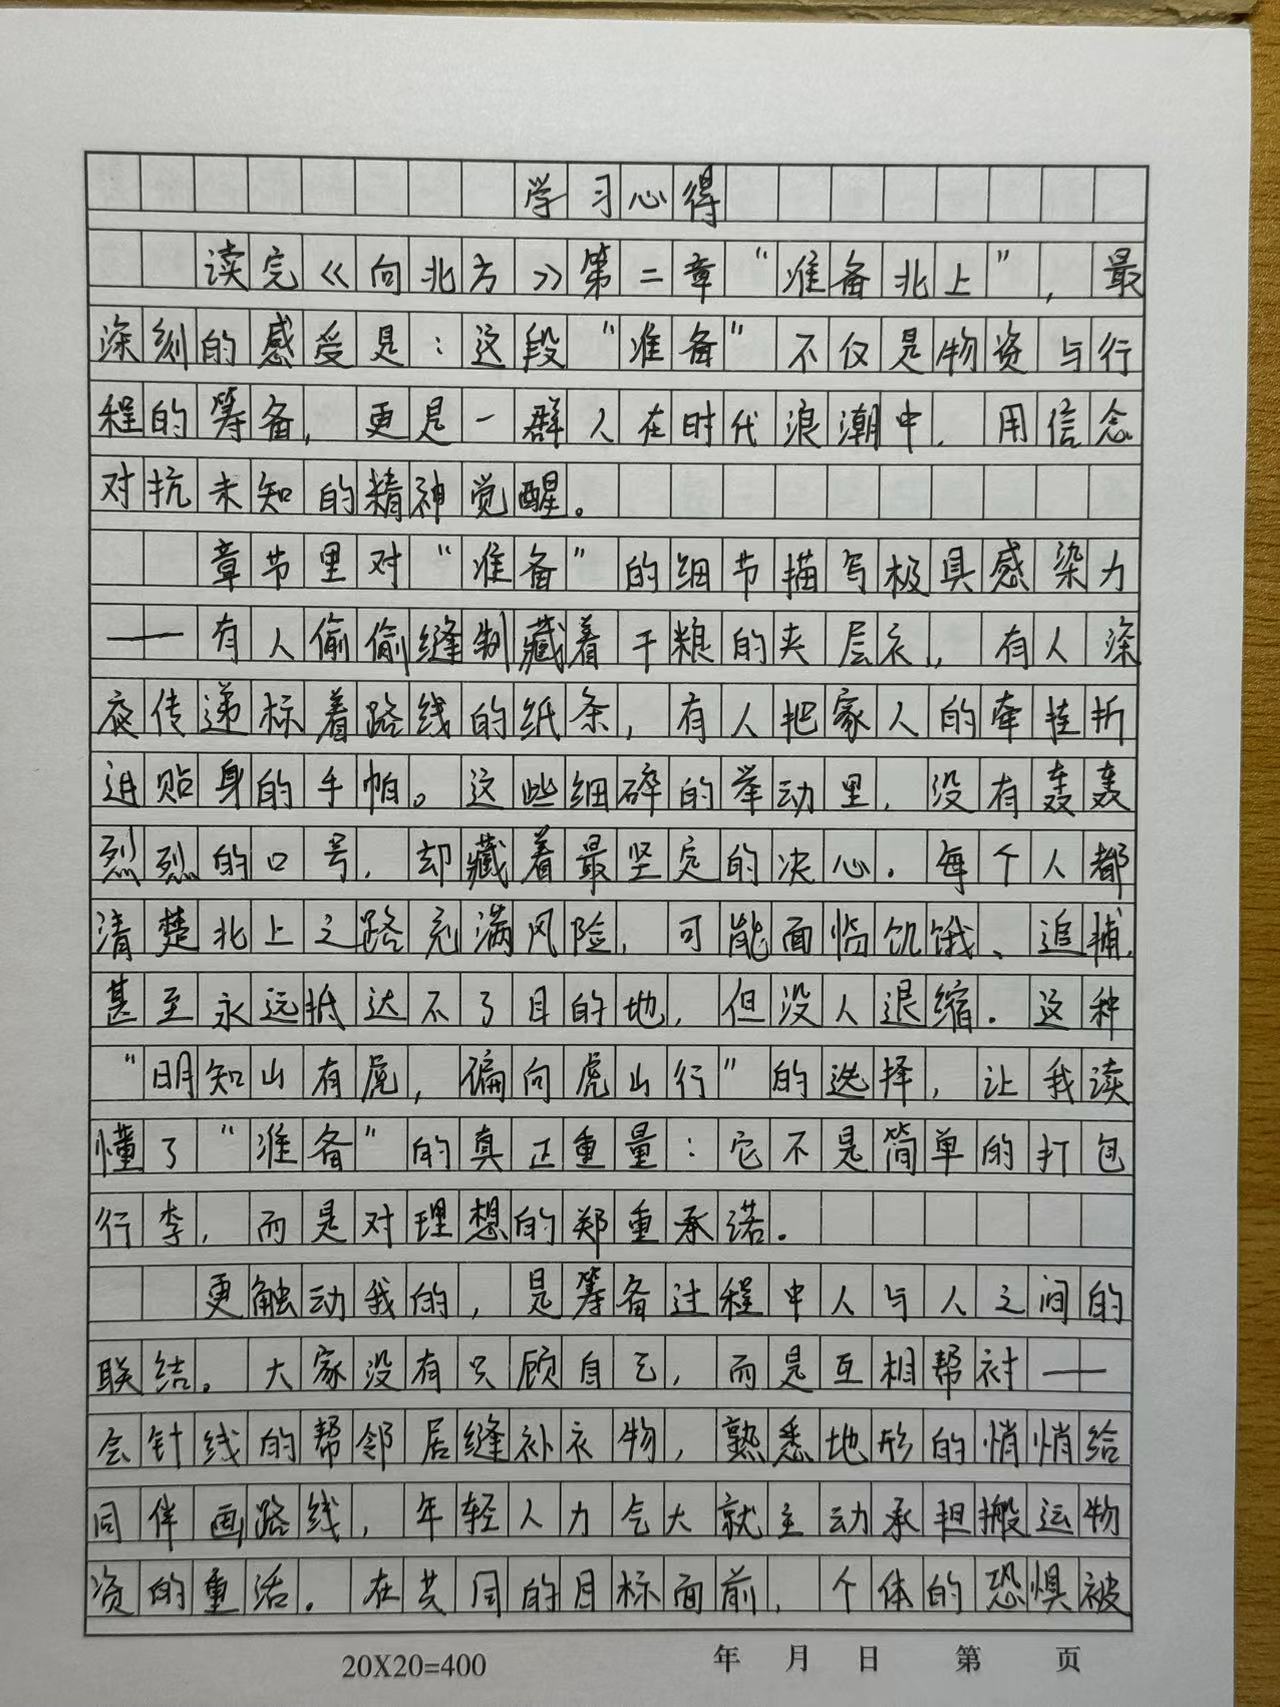 学习心得
读完《向北方》第二章“准备北上”，最
深刻的感受是：这段“准备”不仅是物资与行
程的筹备，更是一群人在时代浪潮中，用信念
对抗未知的精神觉醒。
章节里对“准备”的细节描写极具感染力
——有人偷偷缝制藏着干粮的夹层衣，有人深
夜传递标着路线的纸条，有人把家人的牵挂折
进贴身的手帕。这些细碎的举动里，没有轰轰
烈烈的口号，却藏着最坚定的决心。每个人都
清楚北上之路充满风险，可能面临饥饿、追捕，
甚至永远抵达不了目的地，但没人退缩。这种
“明知山有虎，偏向虎山行”的选择，让我读
懂了“准备”的真正重量：它不是简单的打包
行李，而是对理想的郑重承诺。
更触动我的，是筹备过程中人与人之间的
联结。大家没有只顾自己，而是互相帮衬——
会针线的帮邻居缝补衣物，熟悉地形的悄悄给
同伴画路线，年轻人力气大就主动承担搬运物
资的重活。在共同的目标面前，个体的恐惧被
20X20=400 年 月 日 第 页